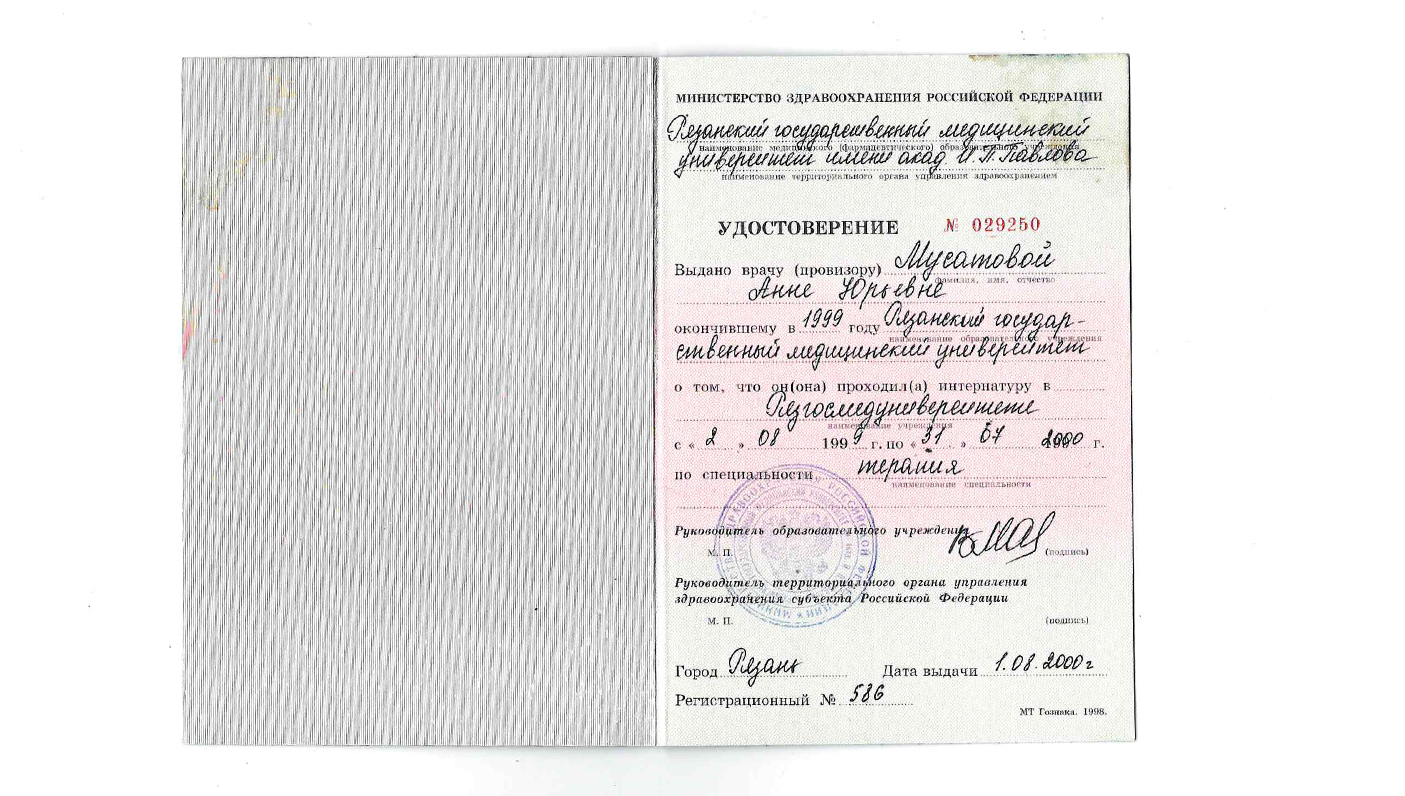 МИНИСТЕРСТВО ЗДРАВООХРАНЕНИЯ РОССИЙСКОЙ ФЕДЕРАЦИИ
Рязанский государственный медицинский
наименование медицинского (фармацевтического) образовательного учреждения
университет имени акад. И.П. Павлова
наименование территориального органа управления здравоохранением
УДОСТОВЕРЕНИЕ № 029250
Выдано врачу (провизору) Мусатовой
фамилия, имя, отчество
Анне Юрьевне
окончившему в 1999 году Рязанский государ-
наименование образовательного учреждения
ственный медицинский университет
о том, что он(она) проходил(а) интернатуру в
Рязгосмедуниверситете
наименование учреждения
с « 2 » 08 1999 г. по « 31 » 07 2000 г.
по специальности терапия
наименование специальности
Руководитель образовательного учреждения
М. П. (подпись)
Руководитель территориального органа управления
здравоохранения субъекта Российской Федерации
М. П. (подпись)
Город Рязань Дата выдачи 1.08.2000г
Регистрационный № 586
МТ Гознака. 1998.